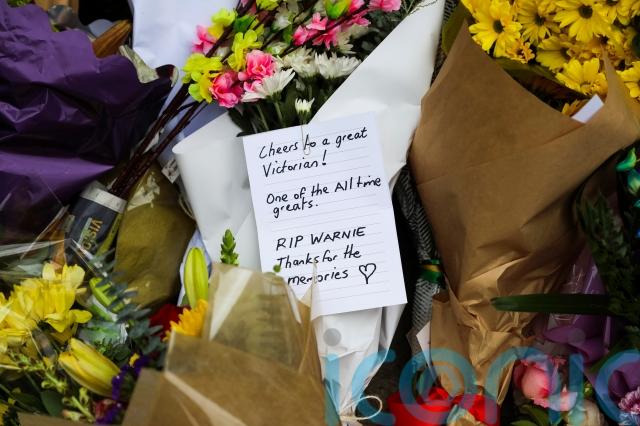 Cheers to a great
Victorian!
One of the All time
greats.
RIP WARNIE
Thanks for the
memories ♡
iconic